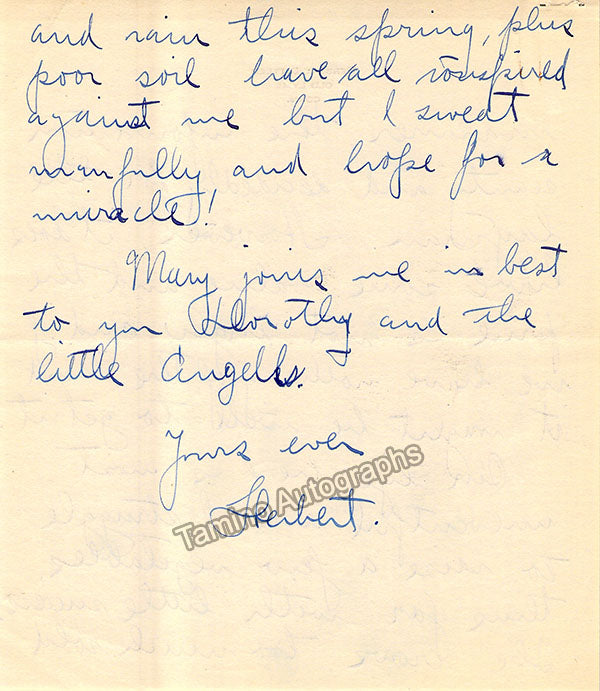 and rain this spring, plus
poor soil have all conspired
against me but I sweat
manfully and hope for a
miracle!
Mary joins me in best
to you Dorothy and the
little Angells.
Yours ever
Herbert.
Tamino Autographs